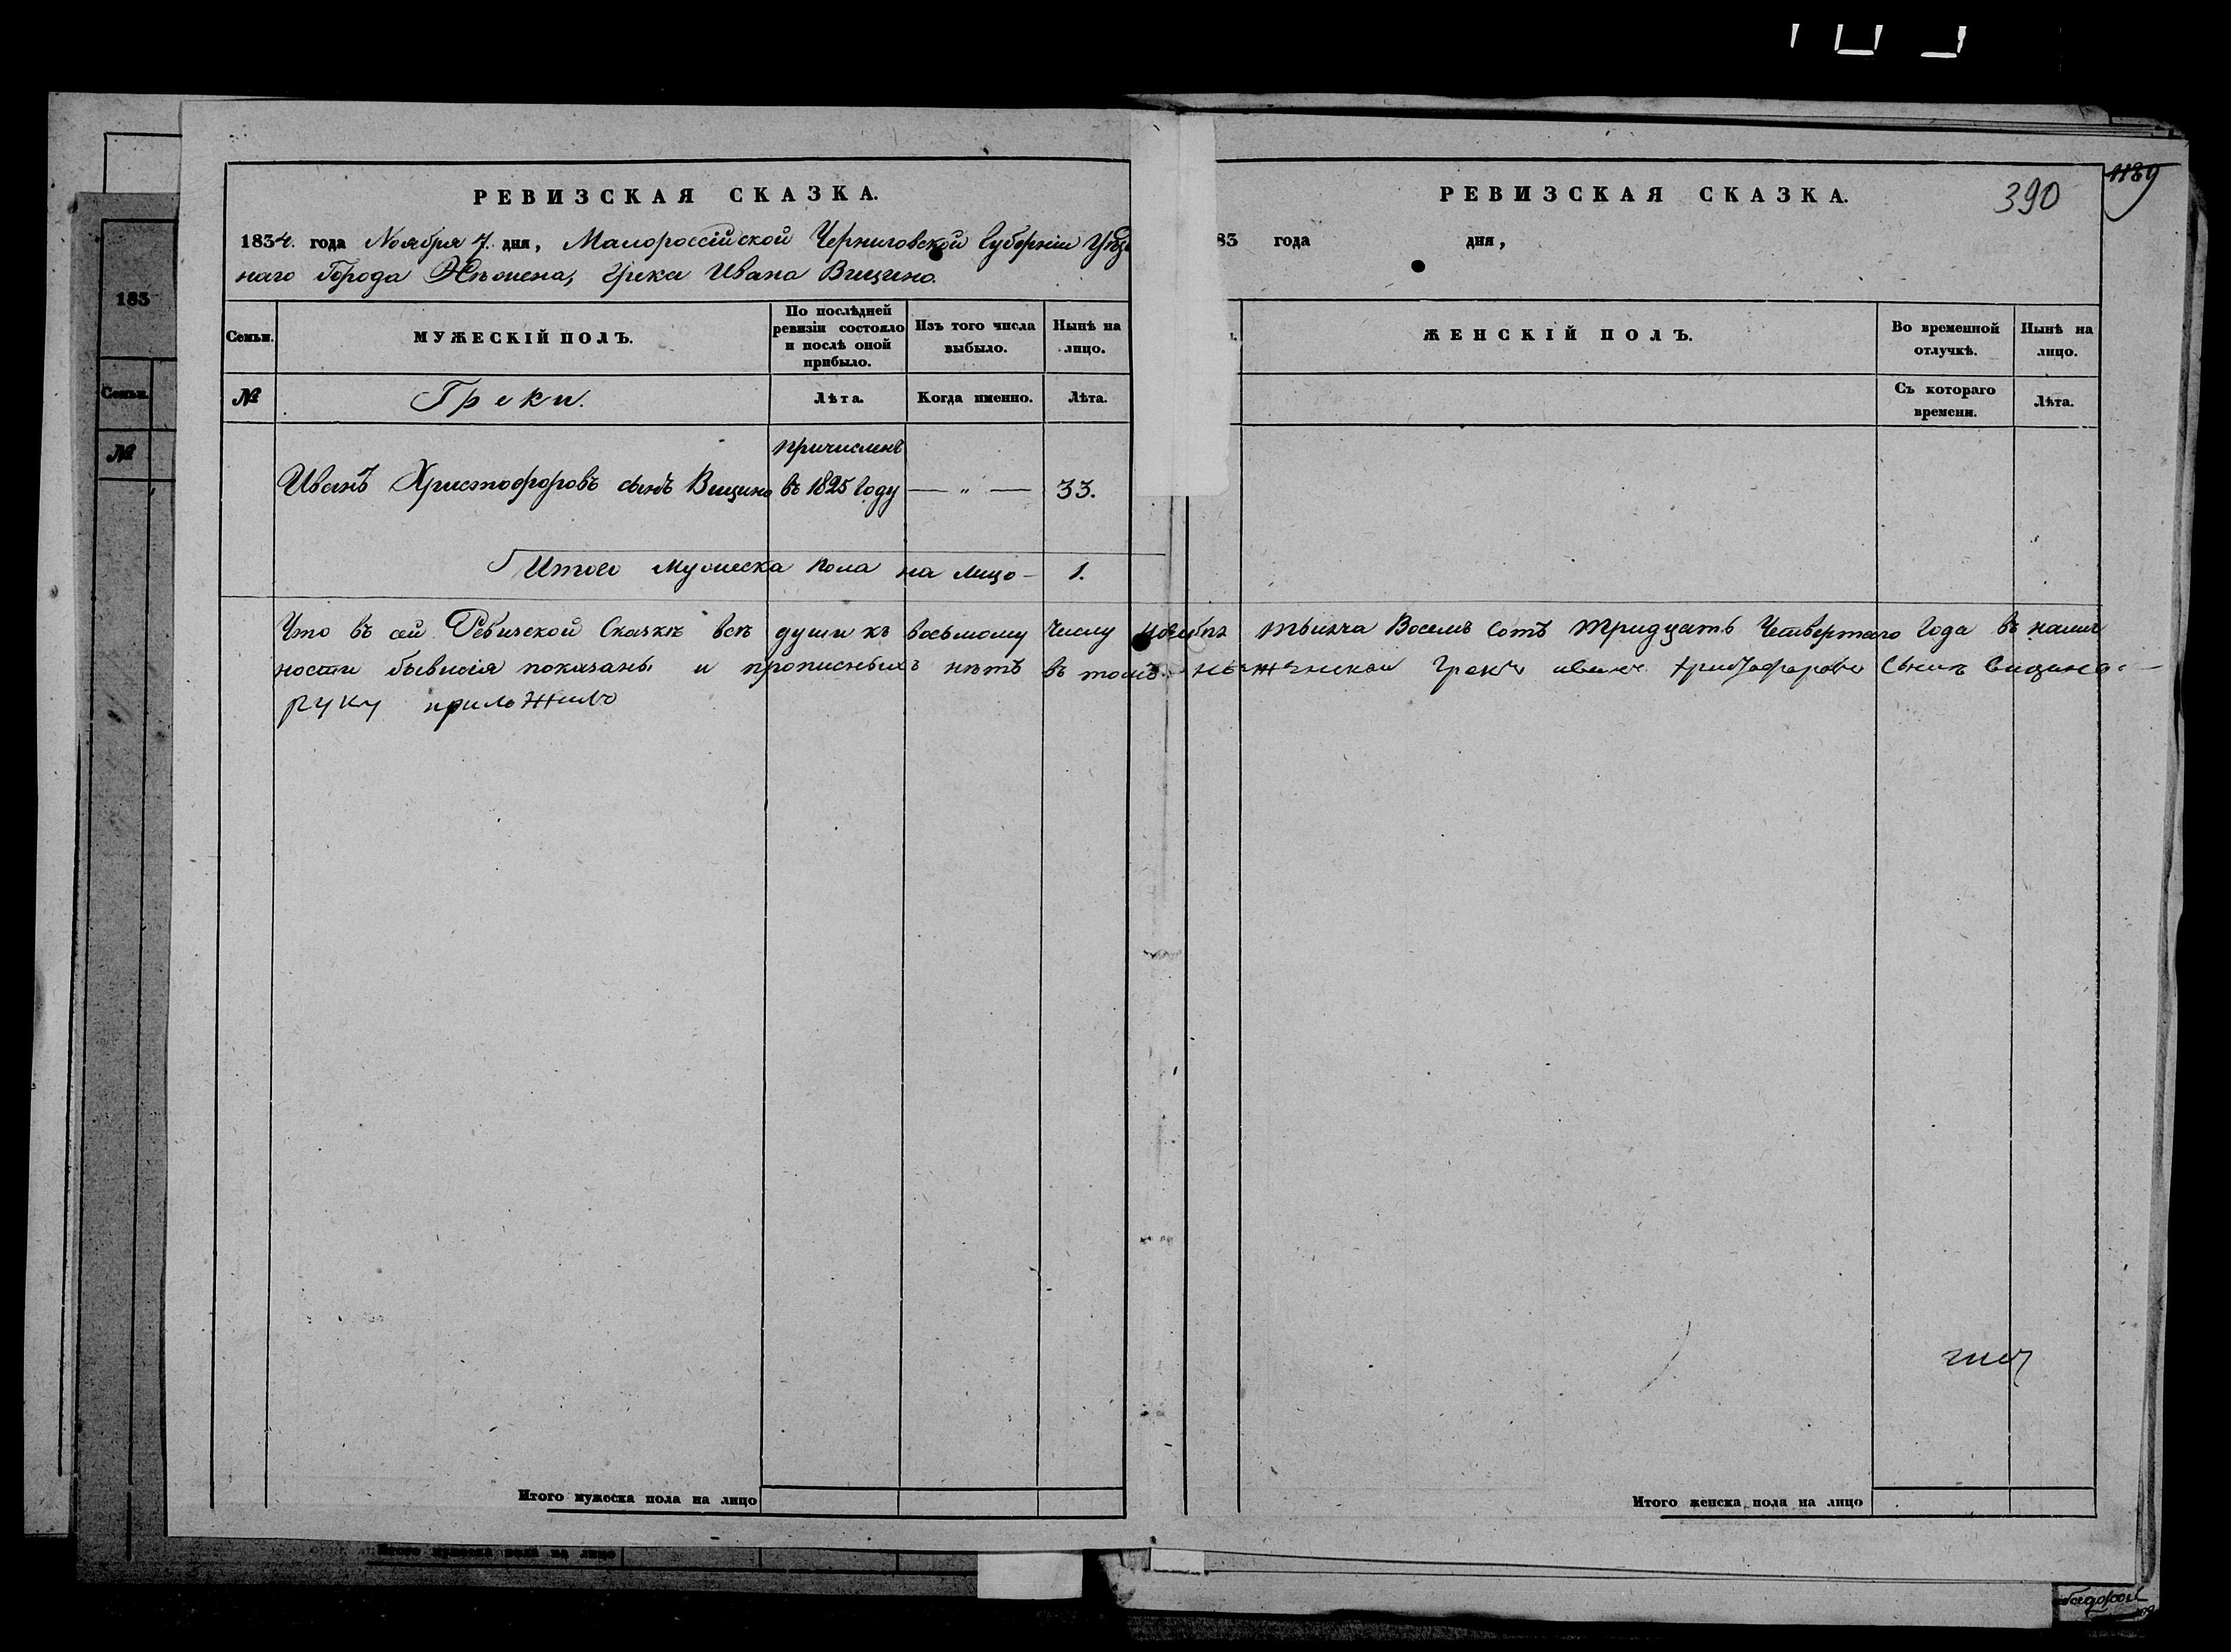 РЕВИЗСКАЯ СКАЗКА.
1834. года Ноября 7. дня, Малороссійской Черниговской Губерніи Уѣзд
наго Города Нѣжена, Грека Ивана Вищина.
Семьи.
МУЖЕСКІЙ ПОЛЪ.
По послѣдней ревизіи состояло и послѣ оной прибыло.
Изъ того числа выбыло.
Нынѣ на лицо.
№
Греки.
Лѣта.
Когда именно.
Лѣта.
причисленъ
Иванъ Христофоровъ сынъ Вищина въ 1825 году — „ — 33.
Итого мужеска пола на лицо – 1.
РЕВИЗСКАЯ СКАЗКА.
390
1189
83 года дня,
ЖЕНСКІЙ ПОЛЪ.
Во временной отлучкѣ.
Нынѣ на лицо.
Съ котораго времени.
Лѣта.
Что въ сей Ревизской Сказкѣ всѣ души къ восьмому числу ноября тысяча восемь сотъ тридцать четвертаго года въ налич
ности бывшія показаны и прописныхъ нѣтъ въ томъ. нѣжинскои грекъ иванъ христофоровъ сынъ вищина
руку приложилъ
Итого мужеска пола на лицо
Итого женска пола на лицо
183
Семьи.
№
Итого мужеска пола на лицо